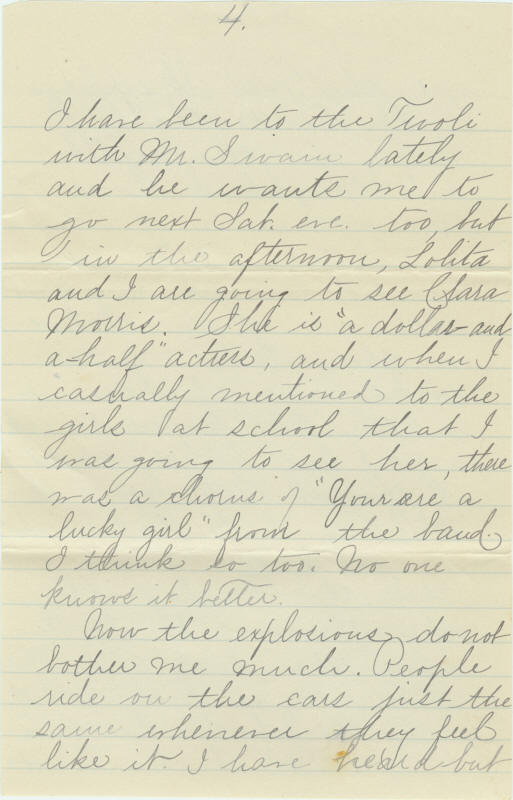 4.
I have been to the Tivoli
with Mr. Swain lately
and he wants me to
go next Sat. eve. too, but
in the afternoon, Lolita
and I are going to see Clara
Morris. She is "a dollar-and
a-half" actress, and when I
casually mentioned to the
girls at school that I
was going to see her, there
was a chorus of "You are a
lucky girl" from the band.
I think so too. No one
knows it better.
Now the explosions do not
bother me much. People
ride on the cars just the
same whenever they feel
like it. I have heard but